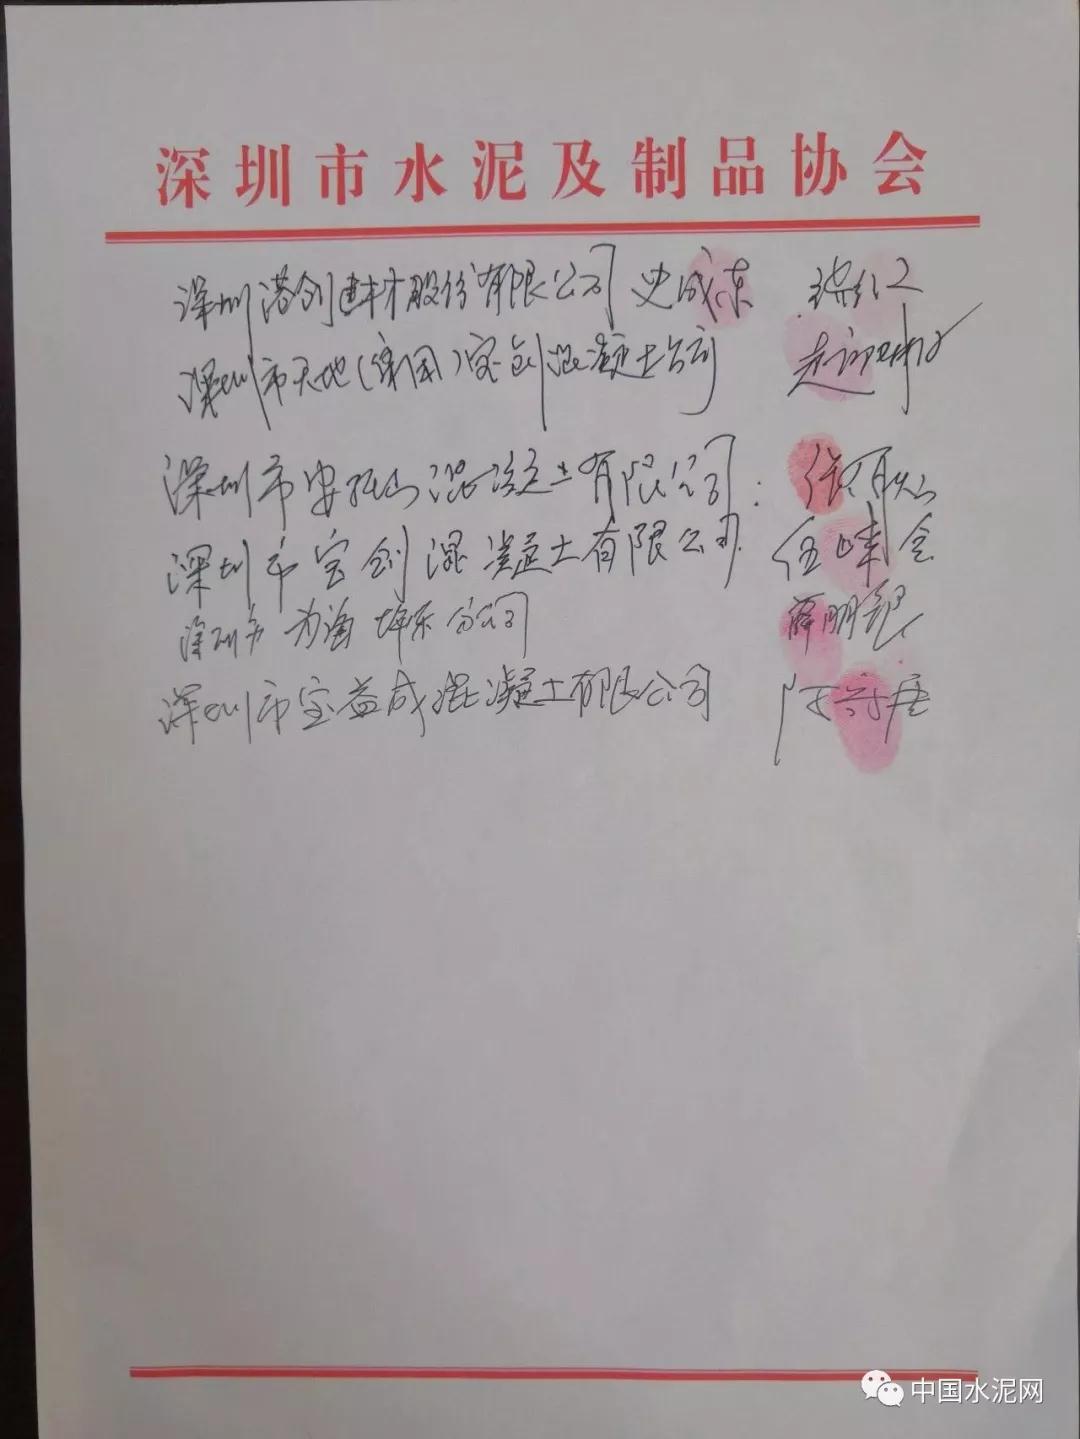 深圳市水泥及制品协会
深圳港创建材股份有限公司 史成东
深圳市天地(集团)宝创混凝土公司
深圳市安托山混凝土有限公司：
深圳市宝创混凝土有限公司 伍峰会
深圳市 为海 坪东 分公司 薛朋
深圳市宝益成混凝土有限公司
中国水泥网